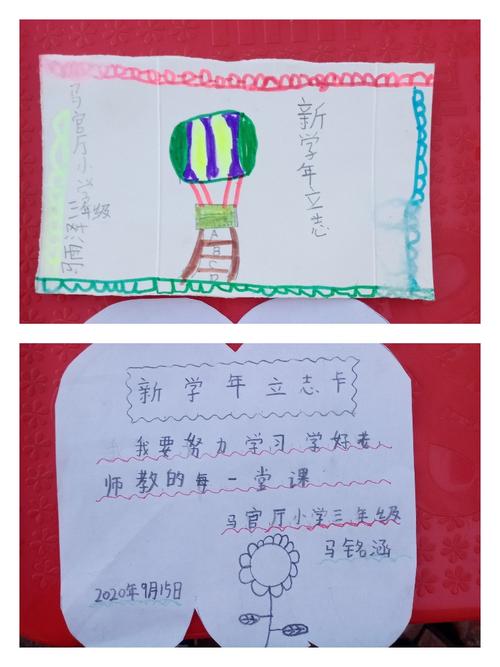 新学年立志
A
B
C
D
马官厅小学三年级
新学年立志卡
我要努力学习学好老
师教的每一堂课
马官厅小学三年级
马铭涵
2020年9月15日